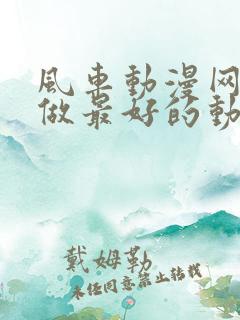 风车動漫网
做最好的動
戴姆勒
未经同意禁止转载